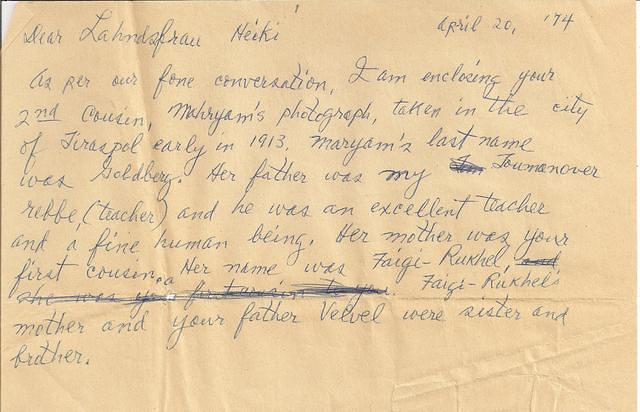 April 20, '74
Dear Lahndsfrau Heiki
As per our fone conversation, I am enclosing your
2nd Cousin, Mahryam's photograph, taken in the city
of Tiraspol early in 1913. Maryam's last name
was Goldberg. Her father was my Toumanover
rebbe, (teacher) and he was an excellent teacher
and a fine human being. Her mother was your
first cousin. Her name was Faigi-Rukhel, and
she was you a to you. Faigi-Rukhel's
mother and your father Velvel were sister and
brother.